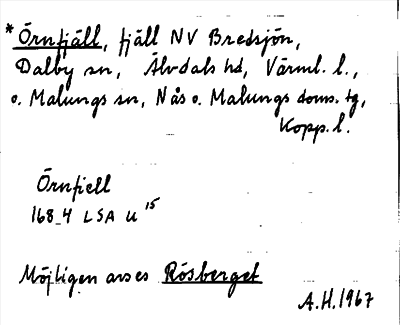 * Örnfjäll, fjäll NV Bredsjön,
Dalby sn, Älvdals hd, Värml. l.,
o. Malungs sn, Nås o. Malungs doms. tg,
Kopp. l.
Örnfiell
168_4 LSA U 15
Möjligen avses Rösberget
A.H. 1967